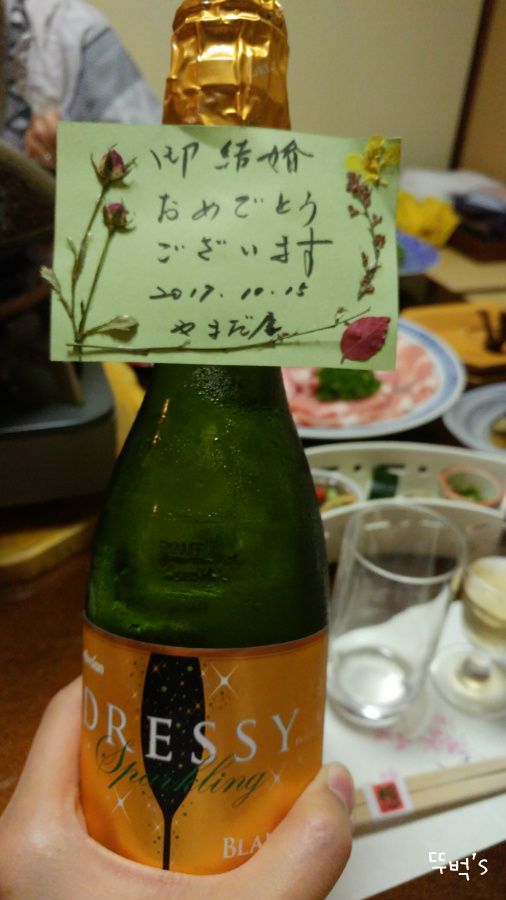 御結婚
おめでとう
ございます
2017.10.15
やまだ屋
DRESSY
Sparkling
BLA
뚜벅's